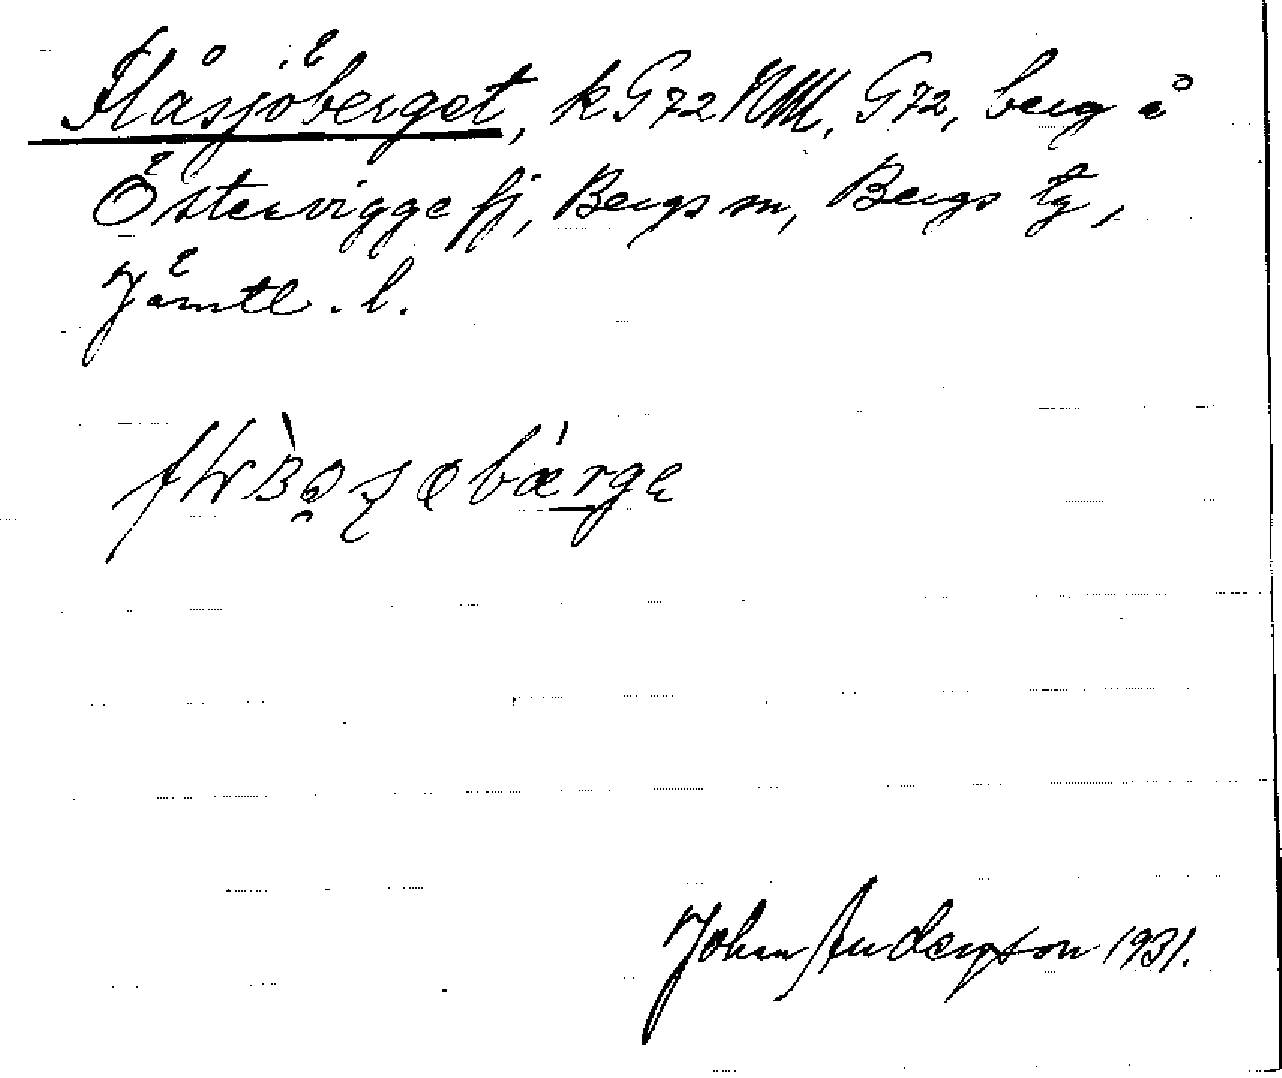 Flåsjöberget, k G72 NW, G72, berg å
Österviggefj, Bergs sn, Bergs tg,
Jämtl. l.
Johan Anderzson 1931.